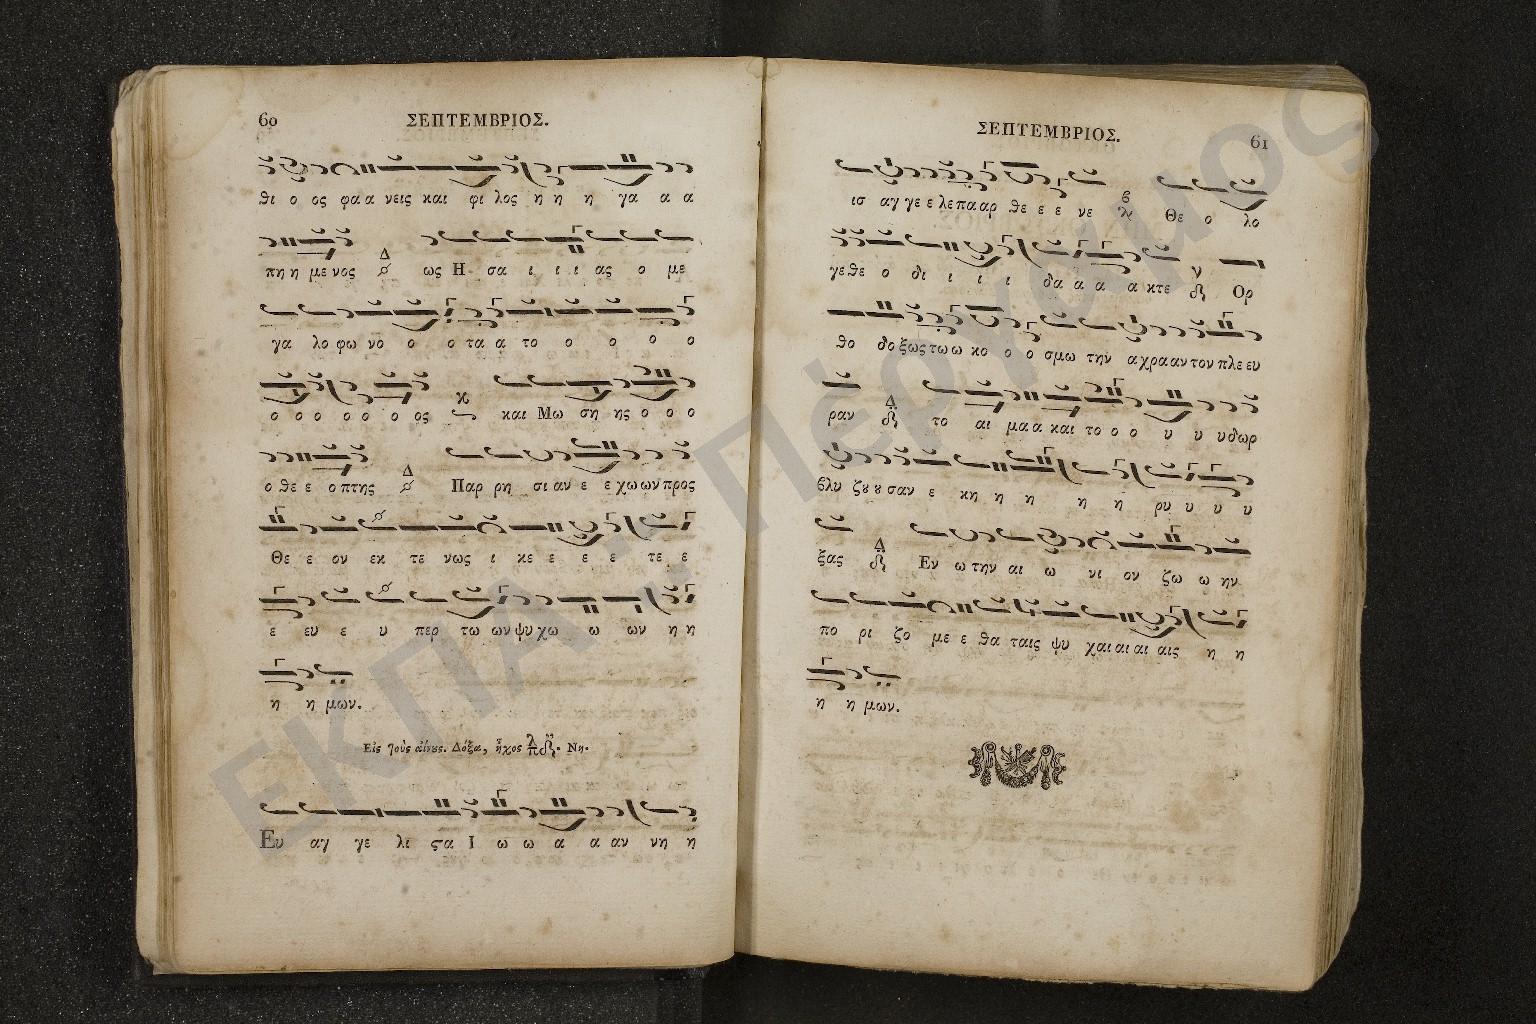 60
ΣΕΠΤΕΜΒΡΙΟΣ.
θι ο ος φα α νεις και φι λος η η η γα α α
πη η με νος Δ ως Η σα ι ι ι ας ο με
γα λο φω νο ο ο τα α το ο ο ο ο
ο ο ο ο ο ο ος κ και Μω ση ης ο ο ο
ο θε ε ο πτης Δ Παρ ρη σι αν ε ε χω ων προς
Θε ε ον εκ τε νως ι κε ε ε ε τε ε
ε ευ ε υ περ τω ων ψυ χω ω ων η η
η η μων.
Εἰς τοὺς αἴνους. Δόξα, ἦχος λπ. Νη.
Ευ αγ γε λι ϛα Ι ω ω α α αν νη η
61
ΣΕΠΤΕΜΒΡΙΟΣ.
ισ αγ γε ε λε πα αρ θε ε ε νε β Θε ο λο
γε θε ο δι ι ι ι δα α α α κτε ν Ορ
θο δο ξως τω ω κο ο ο σμω την α χρα αν τον πλε ευ
ραν Δ το αι μα α και το ο ο υ υ υ δωρ
βλυ ζȣ ȣ σαν ε κη η η η η ρυ υ υ υ
ξας Δ Εν ω την αι ω νι ον ζω ω ην
πο ρι ζο με ε θα ταις ψυ χαι αι αι αις η η
η η μων.
ΕΚΠΑ - Πέργαμος